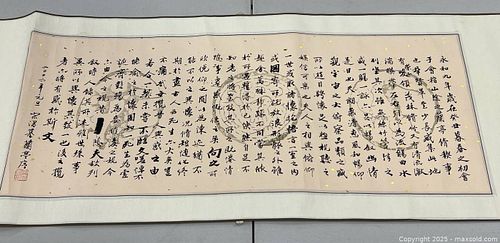 永和九年歲在癸丑暮春之初會
于會稽山陰之蘭亭脩禊事
也羣賢畢至少長咸集此地
有崇山峻領茂林脩竹又有清流激
湍暎帶左右引以為流觴曲水
列坐其次雖無絲竹管弦之
盛一觴一詠亦足以暢敘幽情
是日也天朗氣清惠風和暢仰
觀宇宙之大俯察品類之盛
所以遊目騁懷足以極視聽之
娛信可樂也夫人之相與俯仰
一世或取諸懷抱悟言一室之內
或因寄所託放浪形骸之外雖
趣舍萬殊靜躁不同當其欣
於所遇暫得於己快然自足不
知老之將至及其所之既惓情
隨事遷感慨係之矣向之所
欣俛仰之閒以為陳迹猶不
能不以之興懷況脩短隨化終
期於盡古人云死生亦大矣豈
不痛哉每攬昔人興感之由
若合一契未嘗不臨文嗟悼不
能喻之於懷固知一死生為虛
誕齊彭殤為妄作後之視今
亦由今之視昔悲夫故列
敘時人錄其所述雖世殊事
異所以興懷其致一也後之攬
者亦將有感於斯文
Copyright 2025 - www.maxsold.com